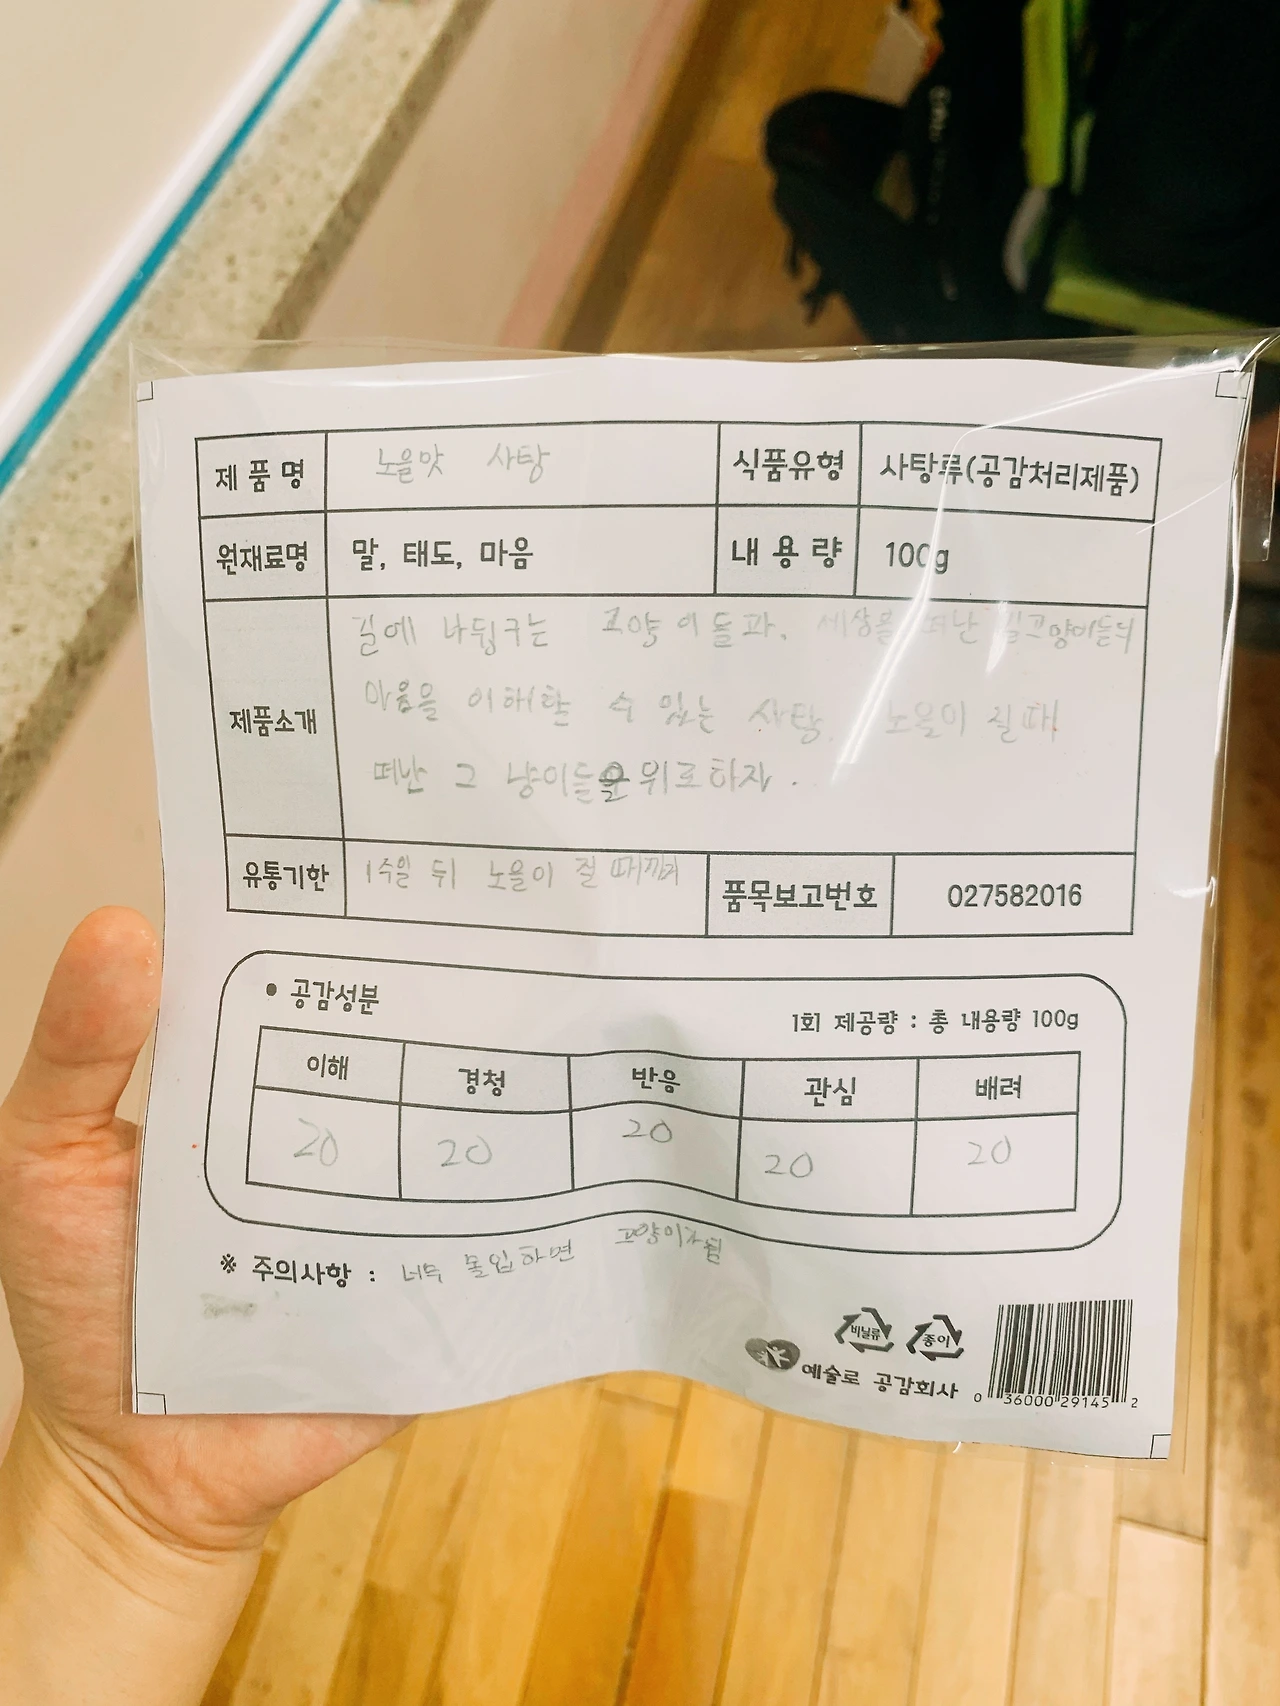 제 품 명 노을맛 사탕 식품유형 사탕류(공감처리제품)
원재료명 말, 태도, 마음 내 용 량 100g
제품소개
길에 나뒹구는 고양이들과, 세상을 떠난 길고양이들의
마음을 이해할 수 있는 사탕. 노을이 질때
떠난 그 냥이들을 위로하자.
유통기한 1주일 뒤 노을이 질 때까지 품목보고번호 027582016
• 공감성분
1회 제공량 : 총 내용량 100g
이해 경청 반응 관심 배려
20 20 20 20 20
※ 주의사항 : 너무 몰입하면 고양이가됨
비닐류 종이
예술로 공감회사
0 36000 29145 2